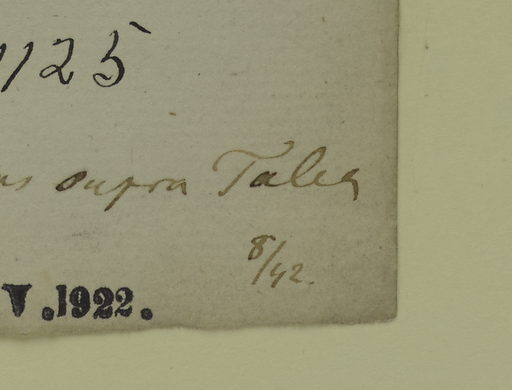 1125
supra Talca
8/42.
V.1922.